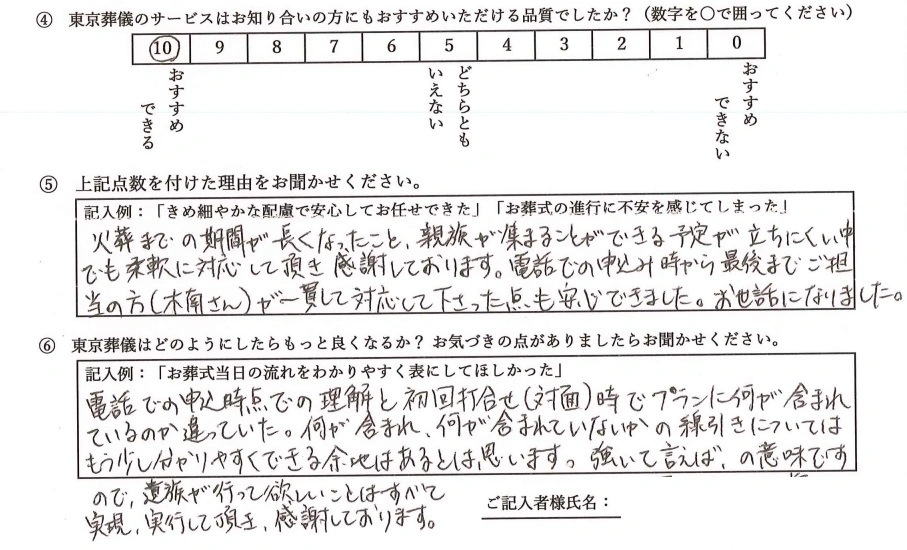 ④ 東京葬儀のサービスはお知り合いの方にもおすすめいただける品質でしたか？（数字を○で囲ってください）
10 9 8 7 6 5 4 3 2 1 0
おすすめできる
どちらともいえない
おすすめできない
⑤ 上記点数を付けた理由をお聞かせください。
記入例：「きめ細やかな配慮で安心してお任せできた」「お葬式の進行に不安を感じてしまった」
火葬までの期間が長くなったこと、親族が集まることができる予定が立ちにくい中
でも柔軟に対応して頂き感謝しております。電話での申込み時から最後までご担
当の方（木南さん）が一貫して対応して下さった点も安心できました。お世話になりました。
⑥ 東京葬儀はどのようにしたらもっと良くなるか？ お気づきの点がありましたらお聞かせください。
記入例：「お葬式当日の流れをわかりやすく表にしてほしかった」
電話での申込時点での理解と初回打合せ（対面）時でプランに何が含まれ
ているのか違っていた。何が含まれ、何が含まれていないかの線引きについては
もう少し分かりやすくできる余地はあるとは思います。強いて言えば、の意味です
ので、遺族が行って欲しいことはすべて
実現、実行して頂き、感謝しております。
ご記入者様氏名：